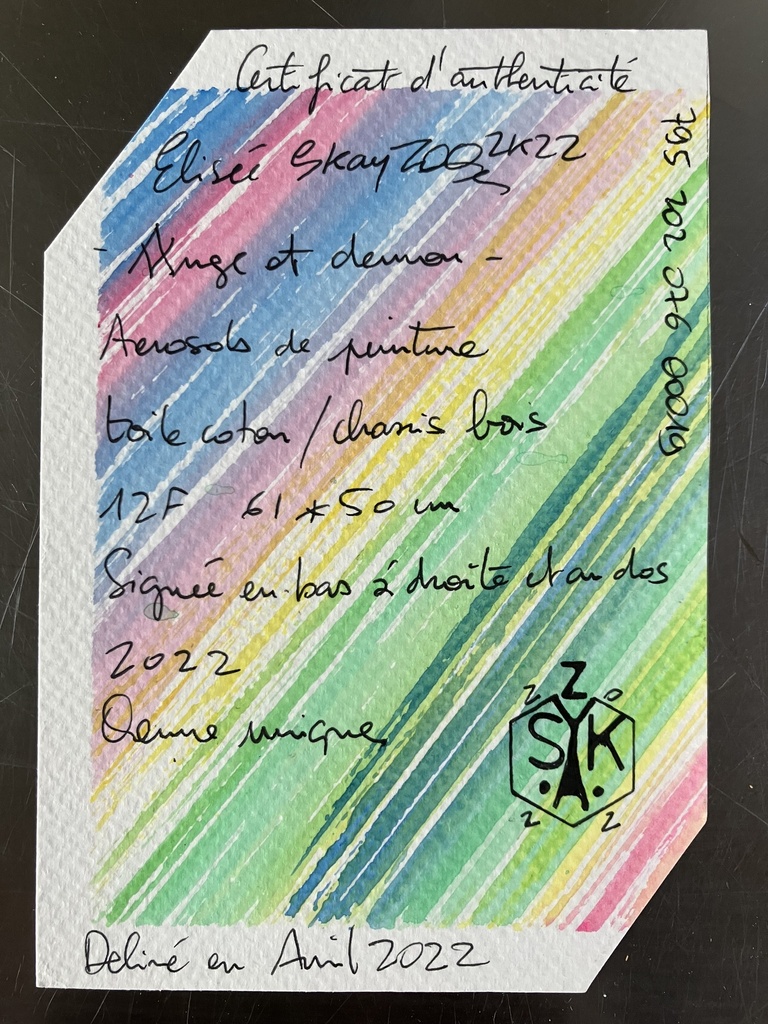 Certificat d'authenticité
Elisée SkayZOO 2K22
- Ange et demon -
Aerosols de peinture
toile coton / chassis bois
12F 61 * 50 cm
Signée en bas à droite et au dos
2022
Oeuvre unique
Deliné en Avril 2022
795 202 076 00019
Z
2 0
SYK
A
2 2